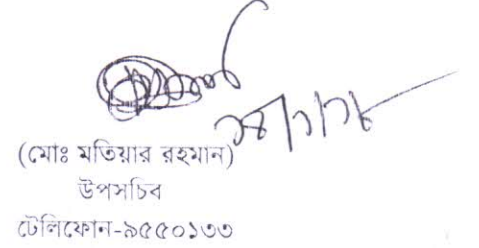 (মোঃ মতিয়ার রহমান)
উপসচিব
টেলিফোন-৯৫৫০১৩৩